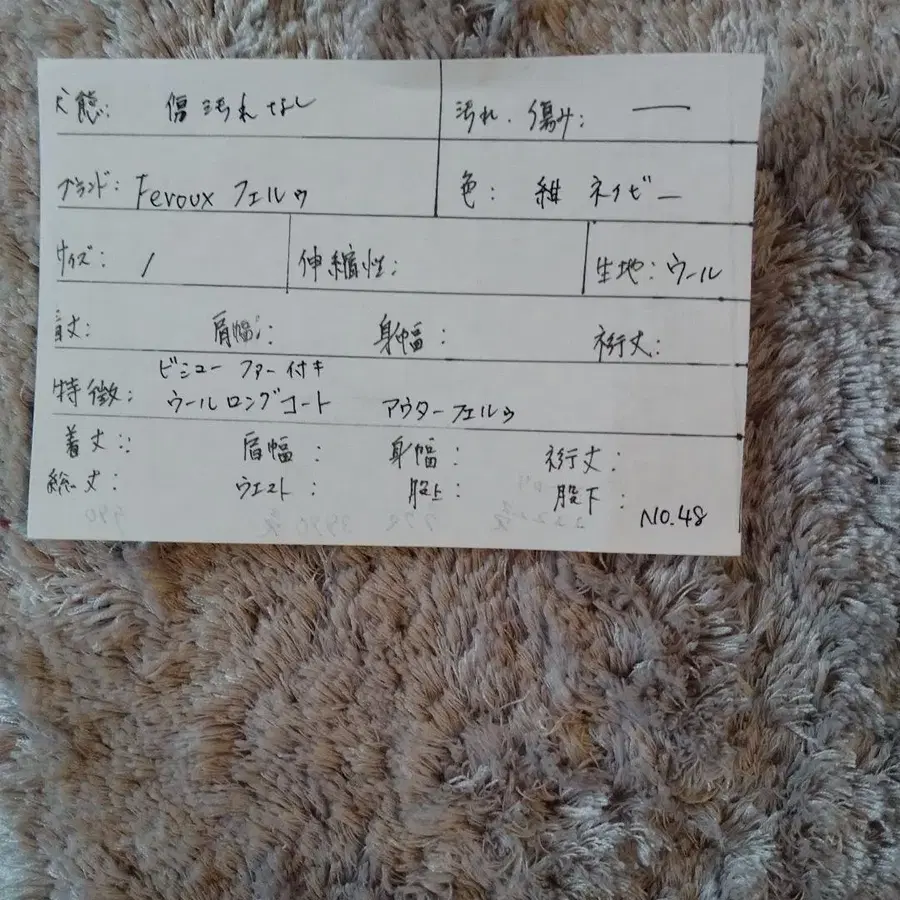 状態: 傷 汚れ なし 汚れ、傷み: ー
ブランド: Feroux フェルゥ 色: 紺 ネイビー
サイズ: 1 伸縮性: 生地: ウール
着丈: 肩幅: 身幅: 裄丈:
ビジュー ファー 付き
特徴: ウール ロング コート アウター フェルゥ
着丈: 肩幅: 身幅: 裄丈:
総丈: ウエスト: 股上: 股下:
NO.48